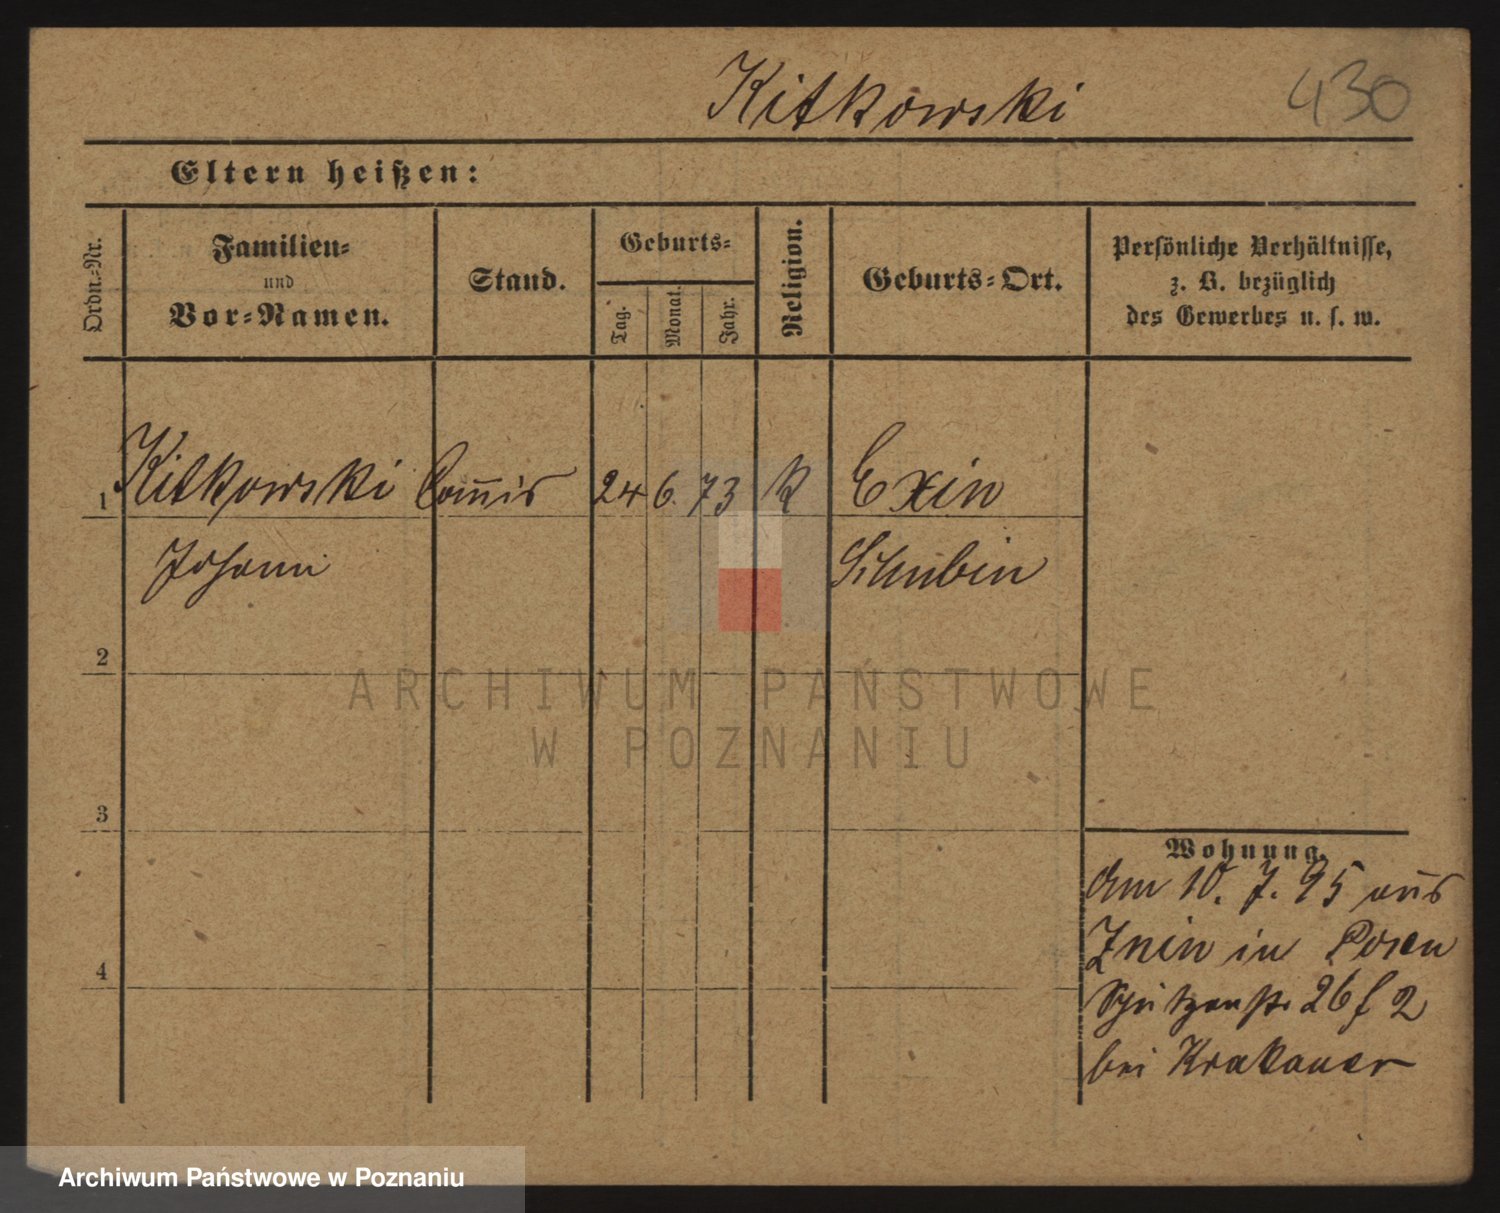 Kitkowski 430
Eltern heißen:
Ordn.-Nr.
Familien-
und
Vor-Namen.
Stand.
Geburts-
Tag.
Monat.
Jahr.
Religion.
Geburts-Ort.
Persönliche Verhältnisse,
z. B. bezüglich
des Gewerbes u. s. w.
1 Kitkowski Commis 24 6. 73 K Exin
Johann Schubin
2
ARCHIWUM PAŃSTWOWE
W POZNANIU
3
Wohnung.
am 10. 7. 95 aus
4 Znin in Posen
Schützenstr 26 f 2
bei Krakauer
Archiwum Państwowe w Poznaniu